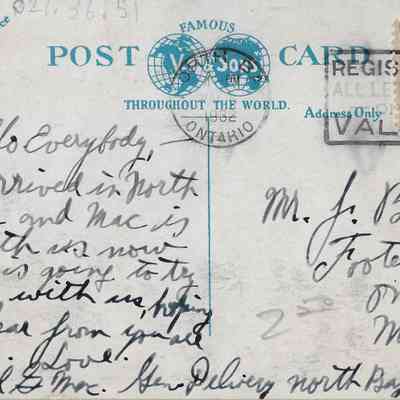 021.36.51
FAMOUS
POST CARD
V & Sons
THROUGHOUT THE WORLD.
Address Only
1932
ONTARIO
REGIS
ALL LE
VAL
lo Everybody,
rrived in North
and Mac is
th us now
is going to try
with us, hoping
ear from you all
Love.
& Mac. Gen Delivery North Bay
Mr. J. B
Foote